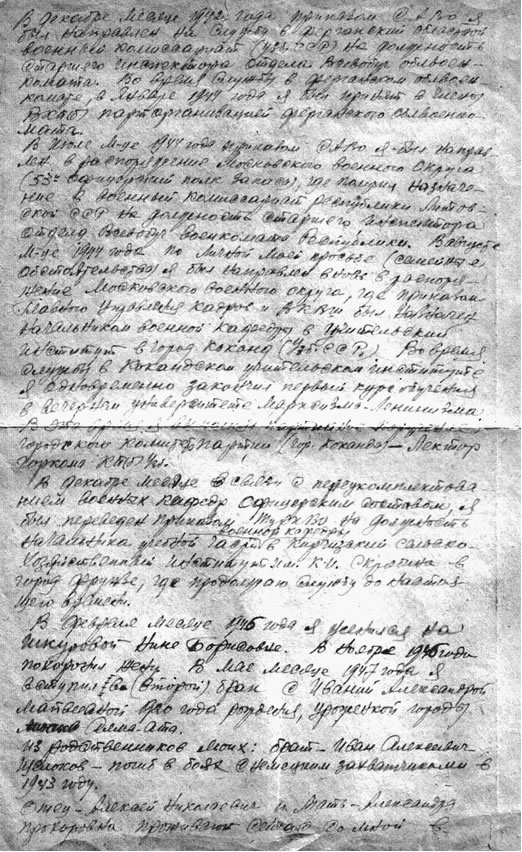 В декабре месяце 1942 года приказом САВО я
был направлен на службу в Ферганский областной
военный комиссариат (УзССР) на должность
старшего инспектора отдела Всевобуч облвоен-
комата. Во время службы в Ферганском облвоен-
комате, в январе 1944 года я был принят в члены
ВКП(б) парторганизацией Ферганского облвоенко-
мата.
В июле м-це 1944 года приказом САВО я был направ-
лен в распоряжение Московского военного округа
(53й офицерский полк запаса), где получил назначе-
ние в военный комиссариат республики Литов-
ской ССР на должность старшего инспектора
отдела Всевобуч военкомата республики. В августе
м-це 1944 года по личной моей просьбе (семейные
обстоятельства) я был направлен вновь в распоря-
жение Московского военного округа, где приказом
Главного Управления кадров был назначен
начальником военной кафедры в Учительский
институт в город Коканд (УзССР). Во время
службы в Кокандском учительском институте
я одновременно закончил первый курс обучения
в вечернем университете Марксизма-Ленинизма.
городского комитета партии (гор. Коканда) - Лектор
Горкома КП(б)Уз.
В декабре месяце в связи с переукомплектова
нием военных кафедр офицерским составом, я
был переведен приказом ТуркВО на должность
военной кафедры
начальника учебной части в Киргизский сельско-
хозяйственный институт им. К.И. Скрябина - в
город Фрунзе, где продолжаю службу до настоя-
щего времени.
В феврале месяце 1945 года я женился на
Шкуровой Нине Борисовне. В ноябре 1946 года
похоронил жену. В мае месяце 1947 года я
вступил во (второй) брак с Александрой
1920 года рождения, уроженкой города
Алма-Ата.
Из родственников моих: брат - Иван Алексеевич
- погиб в боях с немецкими захватчиками в
1943 году.
Отец - Алексей Николаевич и мать - Александра
Прохоровна проживают сейчас со мной в